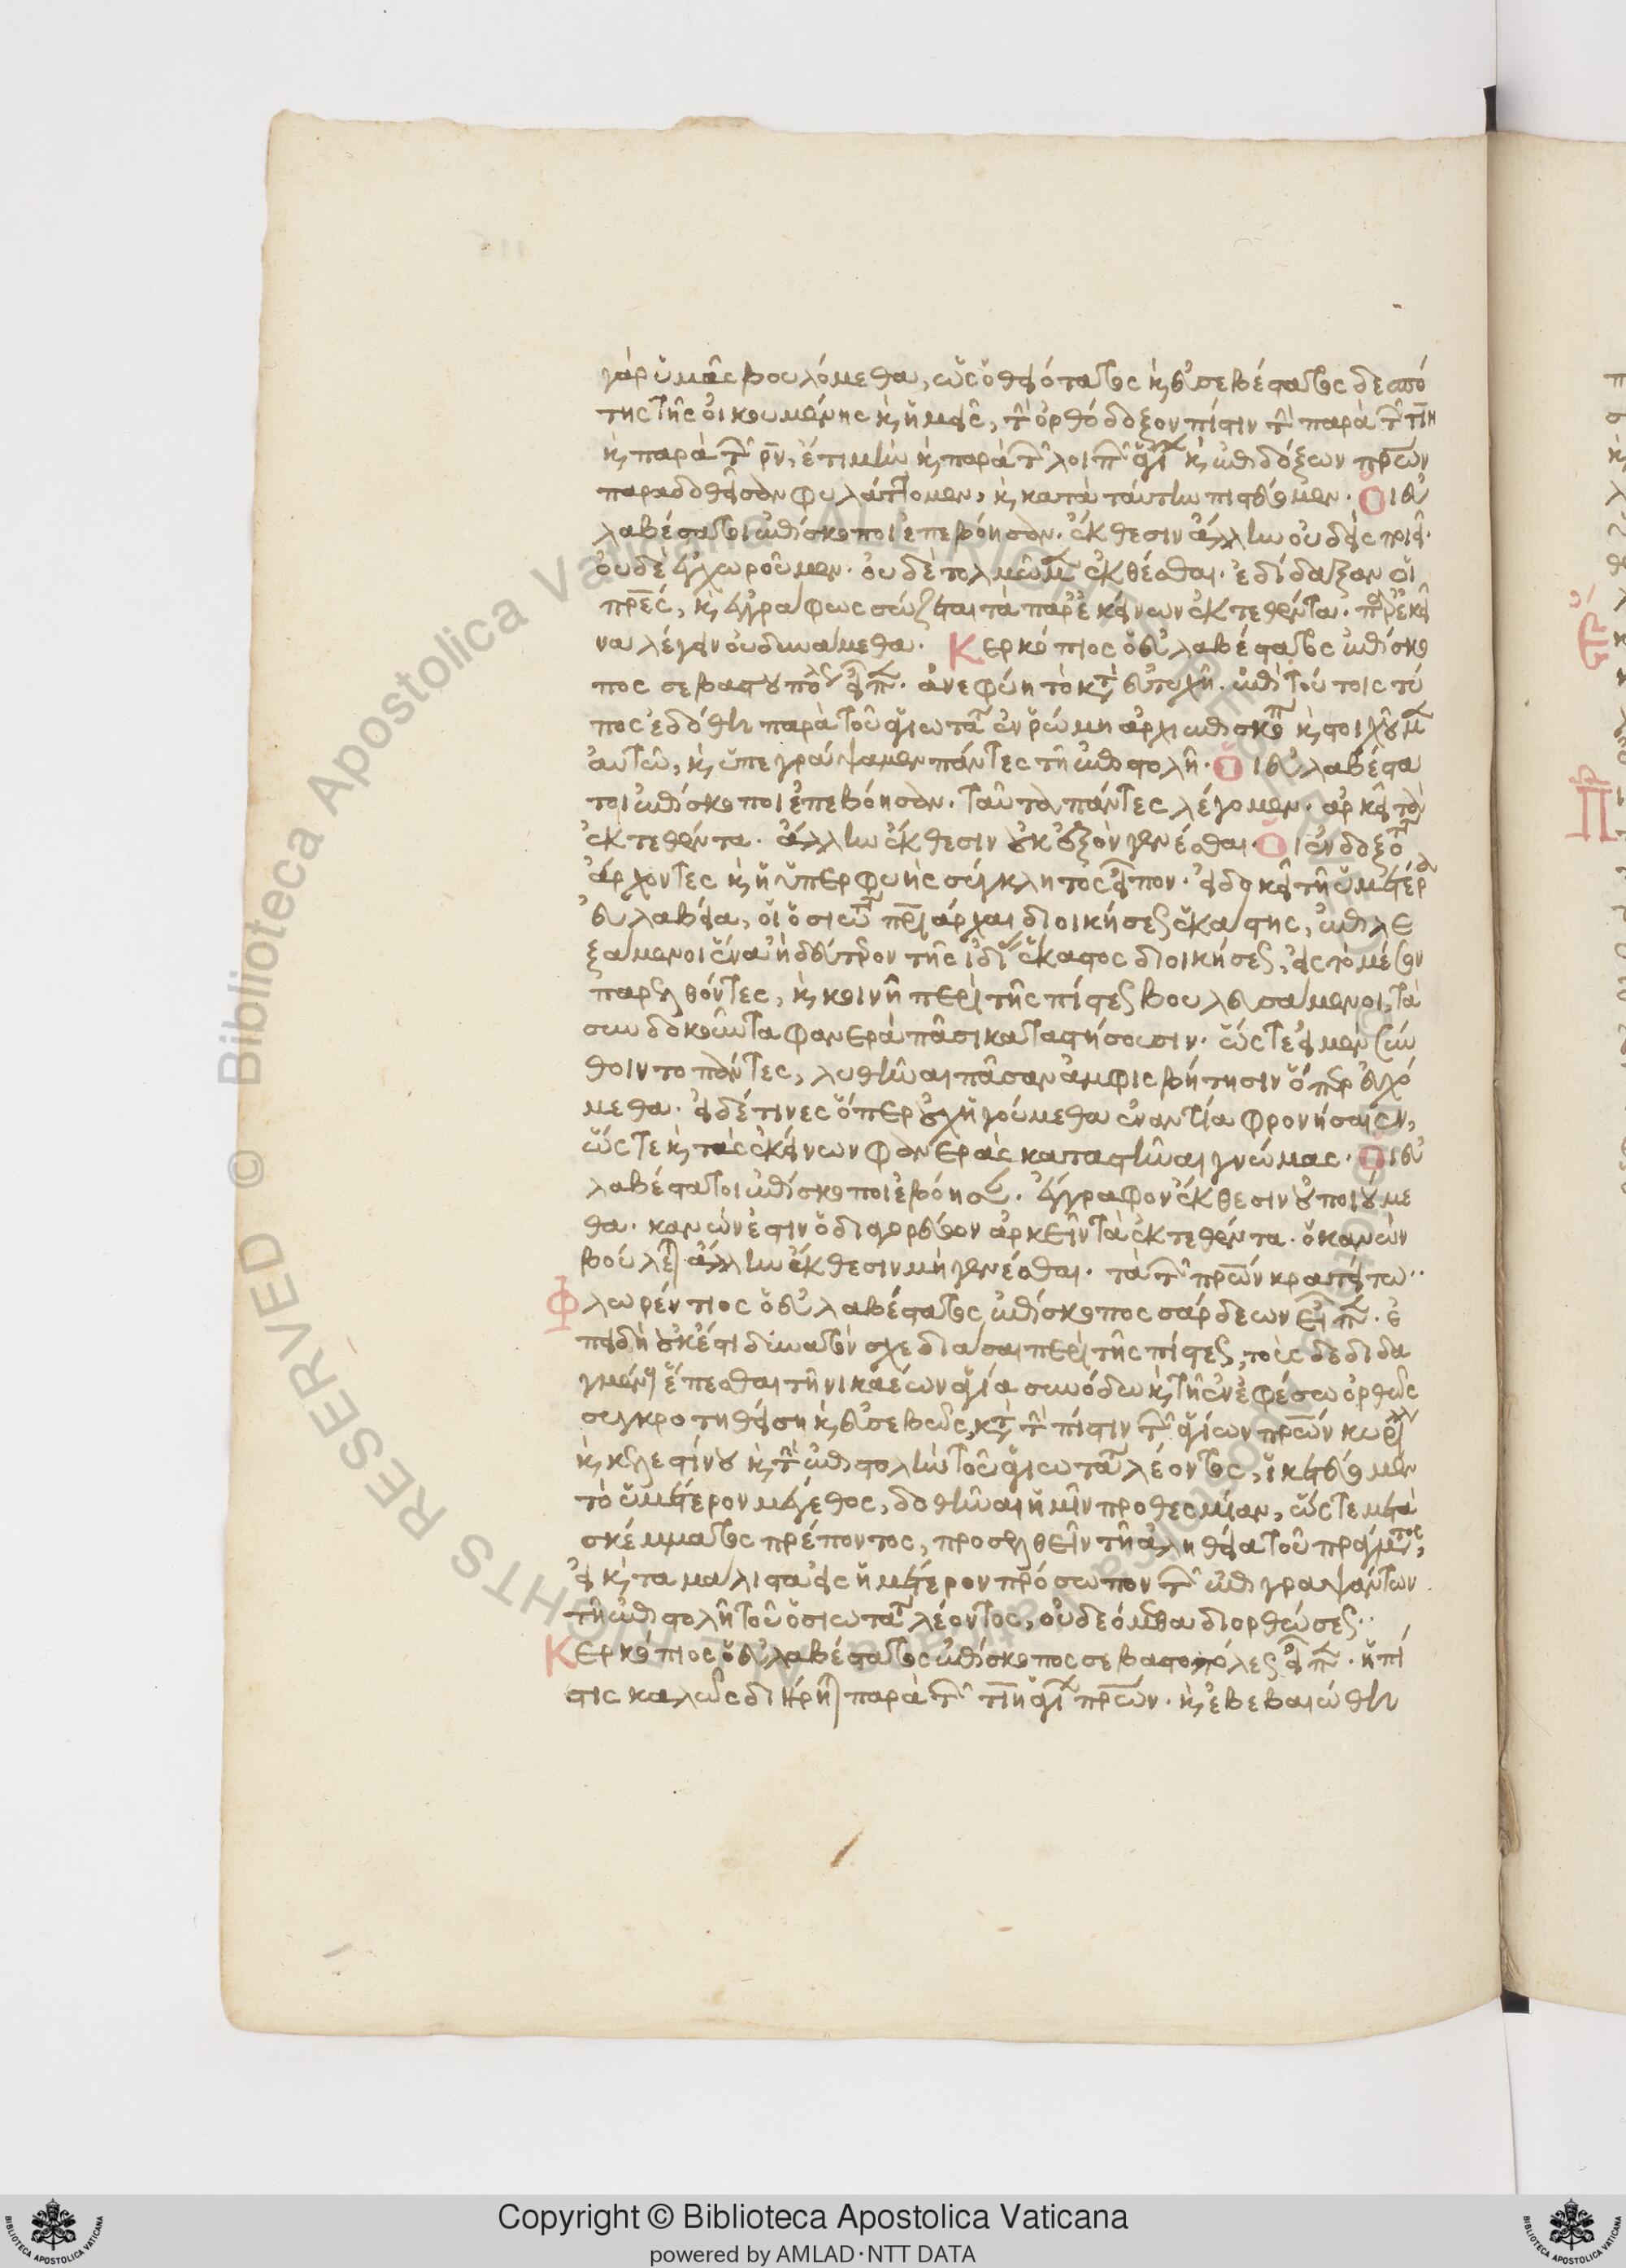 γὰρ ὑμᾶς βουλόμεθα, ὡς ὁ θειότατος κ εὐσεβέστατος δεσπό
της τῆς οἰκουμένης κ ἡμεῖς, τὴν ὀρθόδοξον πίστιν τὴν παρὰ τῶν τιη
κ παρὰ τῶν ρν, ἔτι μὴν κ παρὰ τῶν λοιπῶν ἁγί κ ἐπιδόξων πρων
παραδοθεῖσαν φυλάττομεν, κ κατὰ ταύτην πιστεύομεν. Οἱ εὐ
λαβέστατοι ἐπίσκοποι ἐπεβόησαν. ἔκθεσιν ἄλλην οὐδεὶς ποιεῖ.
οὐδὲ ἐγχωροῦμεν. οὐδὲ τολμῶμ ἐκθέσθαι. ἐδίδαξαν οἱ
πρες, κ ἐγγράφως σώζεται τὰ παρ' ἐκείνων ἐκτεθέντα. παρ' ἐκεῖ
να λέγειν οὐ δυνάμεθα. Κερκόπιος ὁ εὐλαβέστατος ἐπίσκο
πος σεβαστουπόλ εἶπ. ἀνεφύη τὸ κατὰ εὐτυχῆ. ἐπὶ τούτοις τύ
πος ἐδόθη παρὰ τοῦ ἁγιωτά ἐν ῥώμη ἀρχιεπισκόπ κ στοιχοῦμ
αὐτῶ, κ ὑπεγράψαμεν πάντες τῆ ἐπιστολῆ. Οἱ εὐλαβέστα
τοι ἐπίσκοποι ἐπεβόησαν. ταῦτα πάντες λέγομεν. ἀρκεῖ τὰ
ἐκτεθέντα. ἄλλην ἔκθεσιν οὐκ ἐξὸν γενέσθαι. Οἱ ἐνδοξότ
ἄρχοντες κ ἡ ὑπερφυὴς σύγκλητος εἶπον. εἰ δοκεῖ τῆ ὑμετέρα
εὐλαβεία, οἱ ὁσιώτ πρι άρχαι διοικήσεως ἑκάστης, ἐπιλε
ξάμενοι ἕνα ἢ δεύτερον τῆς ἰδί ἕκαστος διοικήσεως, εἰς τὸ μέσον
παρελθόντες, κ κοινῆ περὶ τῆς πίστεως βουλευσάμενοι, τὰ
συνδοκοῦντα φανερὰ πᾶσι καταστήσουσιν. ὥστε εἰ μὲν συν
θοιντο πάντες, λυθῆναι πᾶσαν ἀμφισβήτησιν ὅπερ εὐχό
μεθα. εἰ δέ τινες ὅπερ οὐχ ἡγούμεθα ἐναντία φρονήσαιεν,
ὥστε κ τὰς ἐκείνων φανερὰς καταστῆναι γνώμας. Οἱ εὐ
λαβέστατοι ἐπίσκοποι ἐβόησαν. ἔγγραφον ἔκθεσιν οὐ ποιούμε
θα. κανών ἐστιν ὁ διαγορεύων ἀρκεῖν τὰ ἐκτεθέντα. ὁ κανὼν
βούλεται ἄλλην ἔκθεσιν μὴ γενέσθαι. τὰ τῶν πρων κρατείτω..
Φλωρέντιος ὁ εὐλαβέστατος ἐπίσκοπος σάρδεων εἶπ. ἐ
πειδὴ οὐκ ἔστι δυνατὸν σχεδιάσαι περὶ τῆς πίστεως, τοὺς δεδιδα
γμένους ἕπεσθαι τῆ νικαέων ἁγία συνόδω κ τῆ ἐν ἐφέσω ὀρθῶς
συγκροτηθείση κ εὐσεβῶς, κατὰ τὴν πίστιν τῶν ἁγίων πρων κυρίλλ
κ κελεστίνου κ τὴν ἐπιστολὴν τοῦ ἁγιωτάτ λέοντος, ἱκετεύομεν
τὸ ὑμέτερον μέγεθος, δοθῆναι ἡμῖν προθεσμίαν, ὥστε μετὰ
σκέμματος πρέποντος, προσελθεῖν τῆ ἀληθεία τοῦ πράγματος,
εἰ κ τα μαλιστα εἰς ἡμέτερον πρόσωπον τῶν ἐπιγραψάντων
τῆ ἐπιστολῆ τοῦ ὁσιωτάτ λέοντος, οὐ δεόμεθα διορθώσεως..
Κερκόπιος ὁ εὐλαβέστατος ἐπίσκοπος σεβαστοπόλεως εἶπ. ἡ πί
στις καλῶς διηρηται παρὰ τῶν τιη ἁγί πρων. κ ἐβεβαιώθη
Copyright © Biblioteca Apostolica Vaticana
powered by AMLAD·NTT DATA